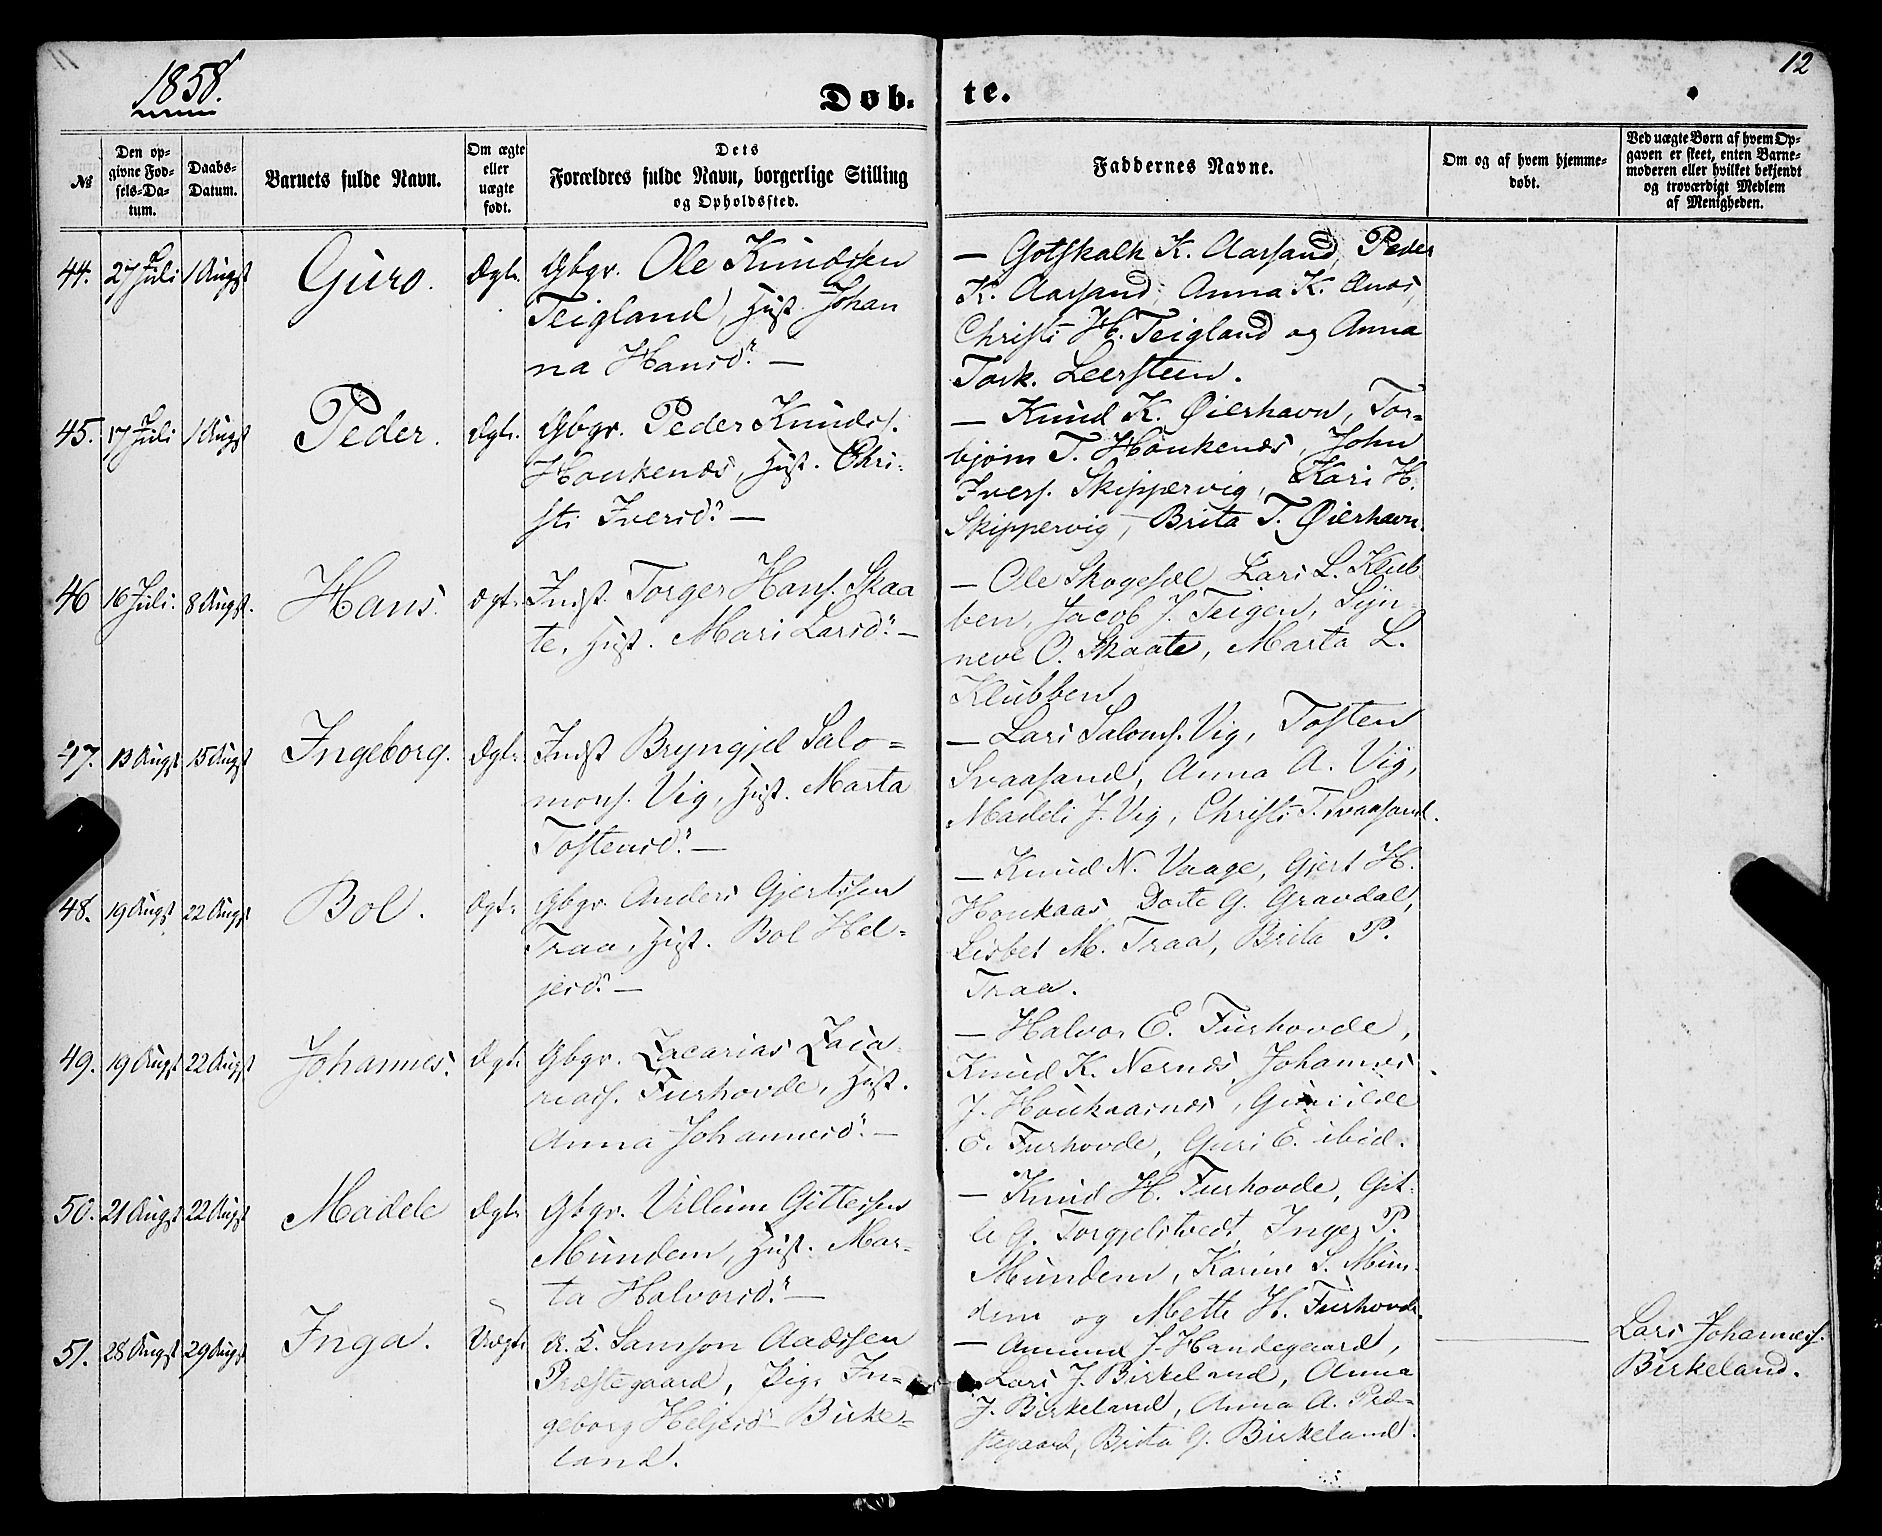 1858.
12
Døb-
te.
№
Den op-
givne Fød-
sels-Da-
tum.
Daabs-
Datum.
Barnets fulde Navn.
Om ægte
eller
uægte
født.
Dets
Forældres fulde Navn, borgerlige Stilling
og Opholdssted.
Faddernes Navne.
Om og af hvem hjemme-
døbt.
Ved uægte Børn af hvem Op-
gaven er skeet, enten Barne-
moderen eller hvilket bekjendt
og troværdigt Medlem
af Menigheden.
44. 27 Juli 1 Augst Guro. Ægte.
Gbgr. Ole Knudssen
Teigland, Hust. Johan
na Hansd. —
— Gotskalk K. Aarsand, Peder
K. Aarsand, Anna K. Ænæs,
Christi H. Teigland og Anna
Tork. Leersteen.
45. 17 Juli 1 Augst Peder. Ægte.
Gbgr. Peder Knuds.
Houkenæs, Hust. Chri-
sti Iversd. —
— Knud K. Øierhavn, Tor-
bjørn T. Houkenæs, John
Ivers. Skippervig, Kari H.
Skippervig, Brita T. Øierhavn.
46 16 Juli. 8 Augst. Hans. Ægte.
Indst. Torger Hans. Skaa
te, Hust. Mari Larsd. —
— Ole Skogesæl, Lars L. Klub
ben, Jacob J. Teigen, Syn-
neve O. Skaate, Marta L.
Klubben
47. 13 Augst 15 Augst Ingeborg. Ægte.
Indst Bryngjel Salo-
mons. Vig, Hust. Marta
Tostensd. —
— Lars Saloms. Vig, Tosten
Svaasand, Anna A. Vig,
Madeli J. Vig, Christi T. Svaasand.
48. 19 Augst 22 Augst Bol. Ægte.
Gbgr. Anders Gjertssen
Traa, Hust. Bol Hel-
jesd. —
— Knud N. Vaage, Gjert H.
Houkaas, Dorte G. Gravdal,
Lisbet M. Traa, Brita P.
Traa.
49. 19 Augst 22 Augst Johannes. Ægte.
Gbgr. Zacarias Zaca-
rias. Furhovde, Hust.
Anna Johannesd. —
— Halvor E. Furhovde,
Knud K. Nernæs, Johannes
J. Houkaasnæs, Gunilde
E. Furhovde, Guri E. ibid.
50. 21 Augst 22 Augst Madele Ægte
Gbgr. Villum Gitlessen
Mundem, Hust. Mar-
ta Halvorsd. —
— Knud H. Furhovde, Git-
le G. Torgjelstvedt, Inger P.
Mundem, Karine S. Mun-
dem og Mette H. Furhovde.
51. 28 Augst 29 Augst Inga. Uægte
Samson Aadssen
Præstegaard, Pige In-
geborg Heljesd Birke-
land.
— Amund J. Handegaard,
Lars J. Birkeland, Anna
J. Birkeland, Anna A. Præ-
stegaard, Brita G. Birkeland.
Lars Johannes.
Birkeland.